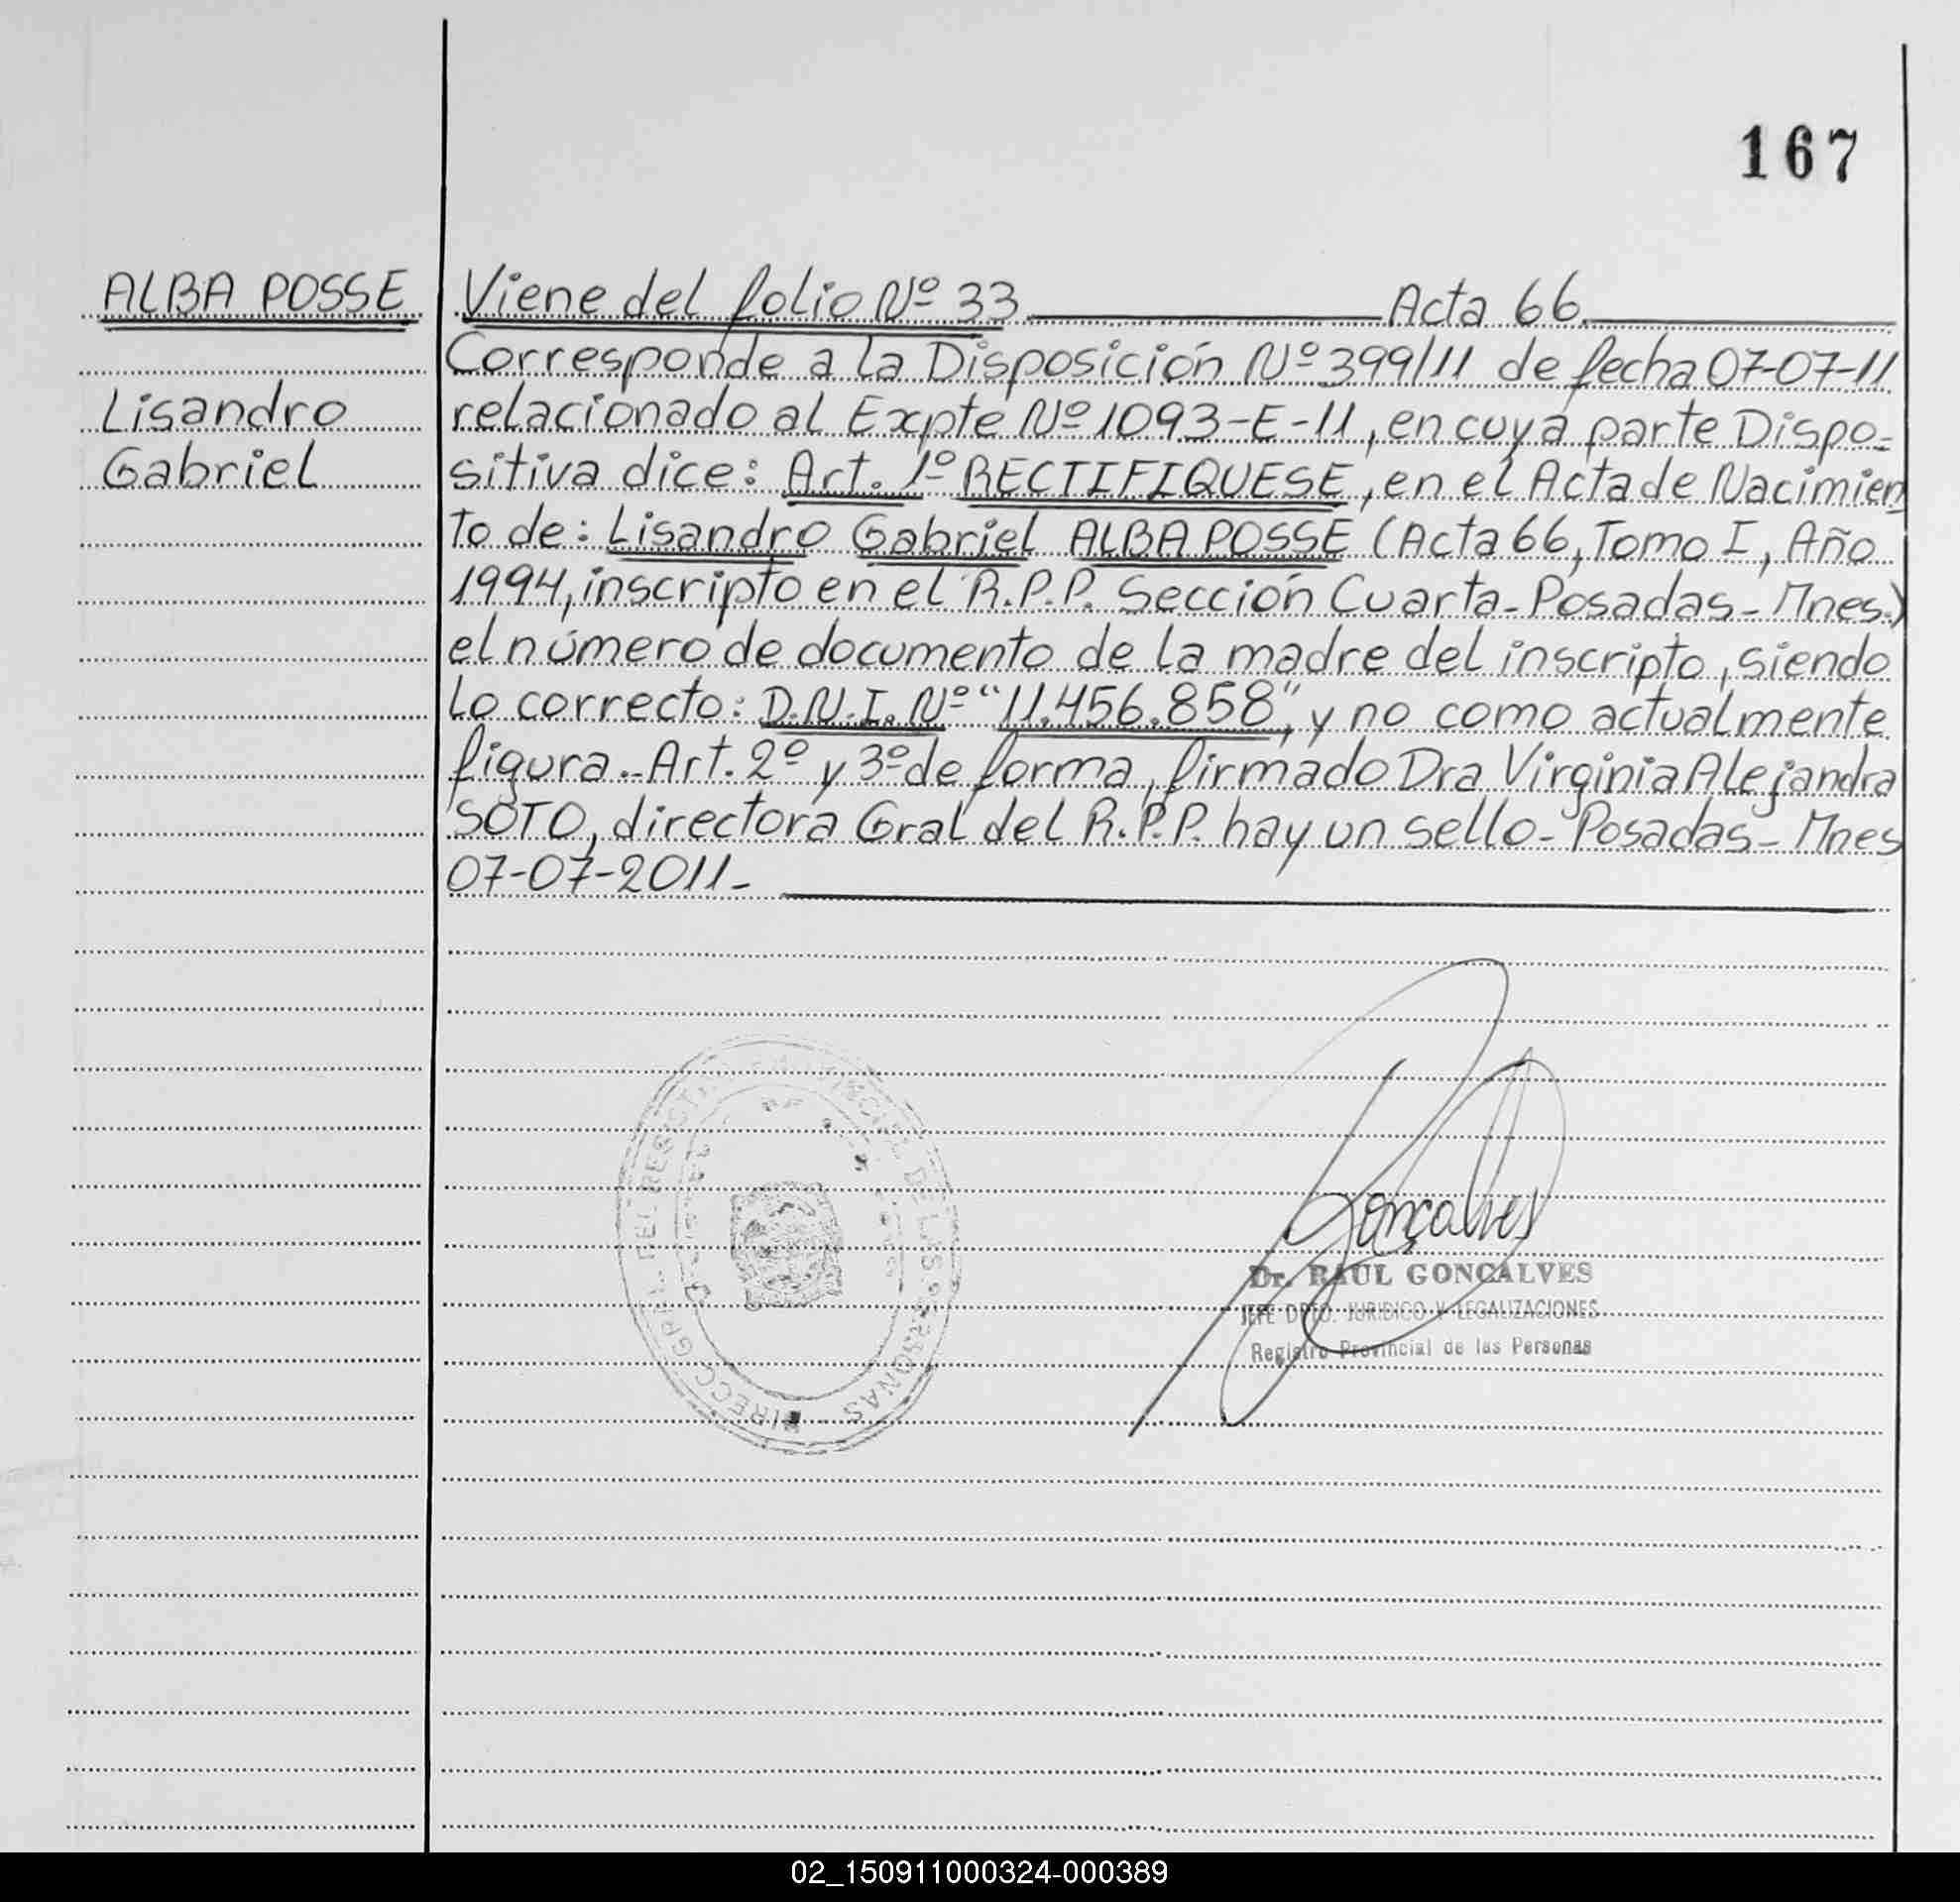 167
ALBA POSSE
Lisandro
Gabriel
Viene del folio Nº 33 Acta 66
Corresponde a la Disposición Nº 399/11 de fecha 07-07-11
relacionado al Expte Nº 1093-E-11, en cuya parte Dispo-
sitiva dice: Art. 1º RECTIFIQUESE, en el Acta de Nacimien
to de: Lisandro Gabriel ALBA POSSE (Acta 66, Tomo I, Año
1994, inscripto en el R.P.P. Sección Cuarta - Posadas - Mnes.)
el número de documento de la madre del inscripto, siendo
lo correcto: D.N.I. Nº "11.456.858", y no como actualmente
figura.- Art. 2º y 3º de forma, firmado Dra Virginia Alejandra
SOTO, directora Gral del R.P.P. hay un sello - Posadas - Mnes
07-07-2011-
DIRECC. GRAL. DEL REGISTRO PROVINCIAL DE LAS PERSONAS
Gonçalves
Dr. RAUL GONCALVES
JEFE DPTO. JURIDICO Y LEGALIZACIONES
Registro Provincial de las Personas
02_150911000324-000389